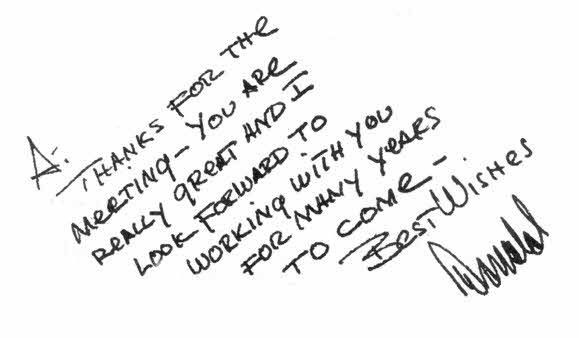 A-
THANKS FOR THE
MEETING - YOU ARE
REALLY GREAT AND I
LOOK FORWARD TO
WORKING WITH YOU
FOR MANY YEARS
TO COME -
BEST WISHES
Donald